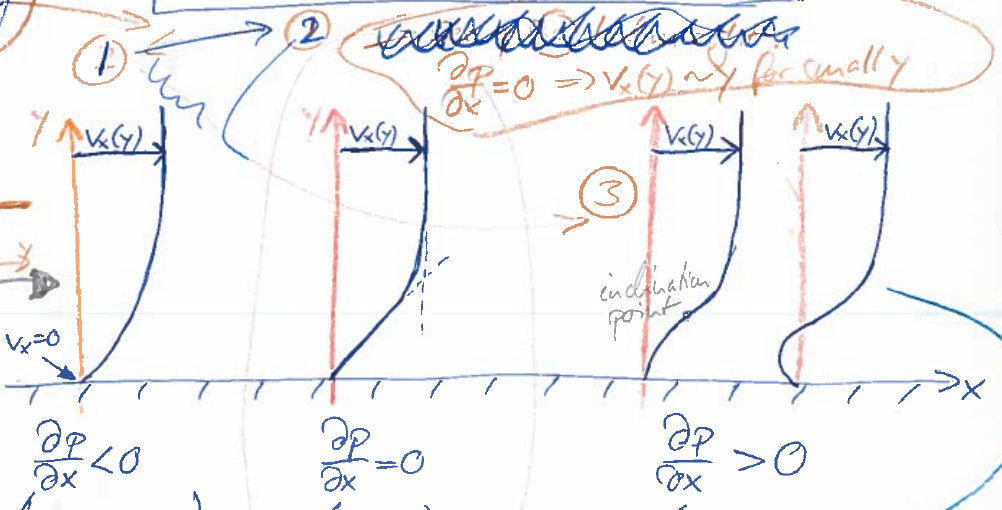 ① → ②
∂p/∂x = 0 ⇒ Vx(y) ~ y for small y
y Vx(y) y Vx(y) Vx(y) Vx(y)
③
inclination
point
Vx=0
x
∂p/∂x < 0 ∂p/∂x = 0 ∂p/∂x > 0